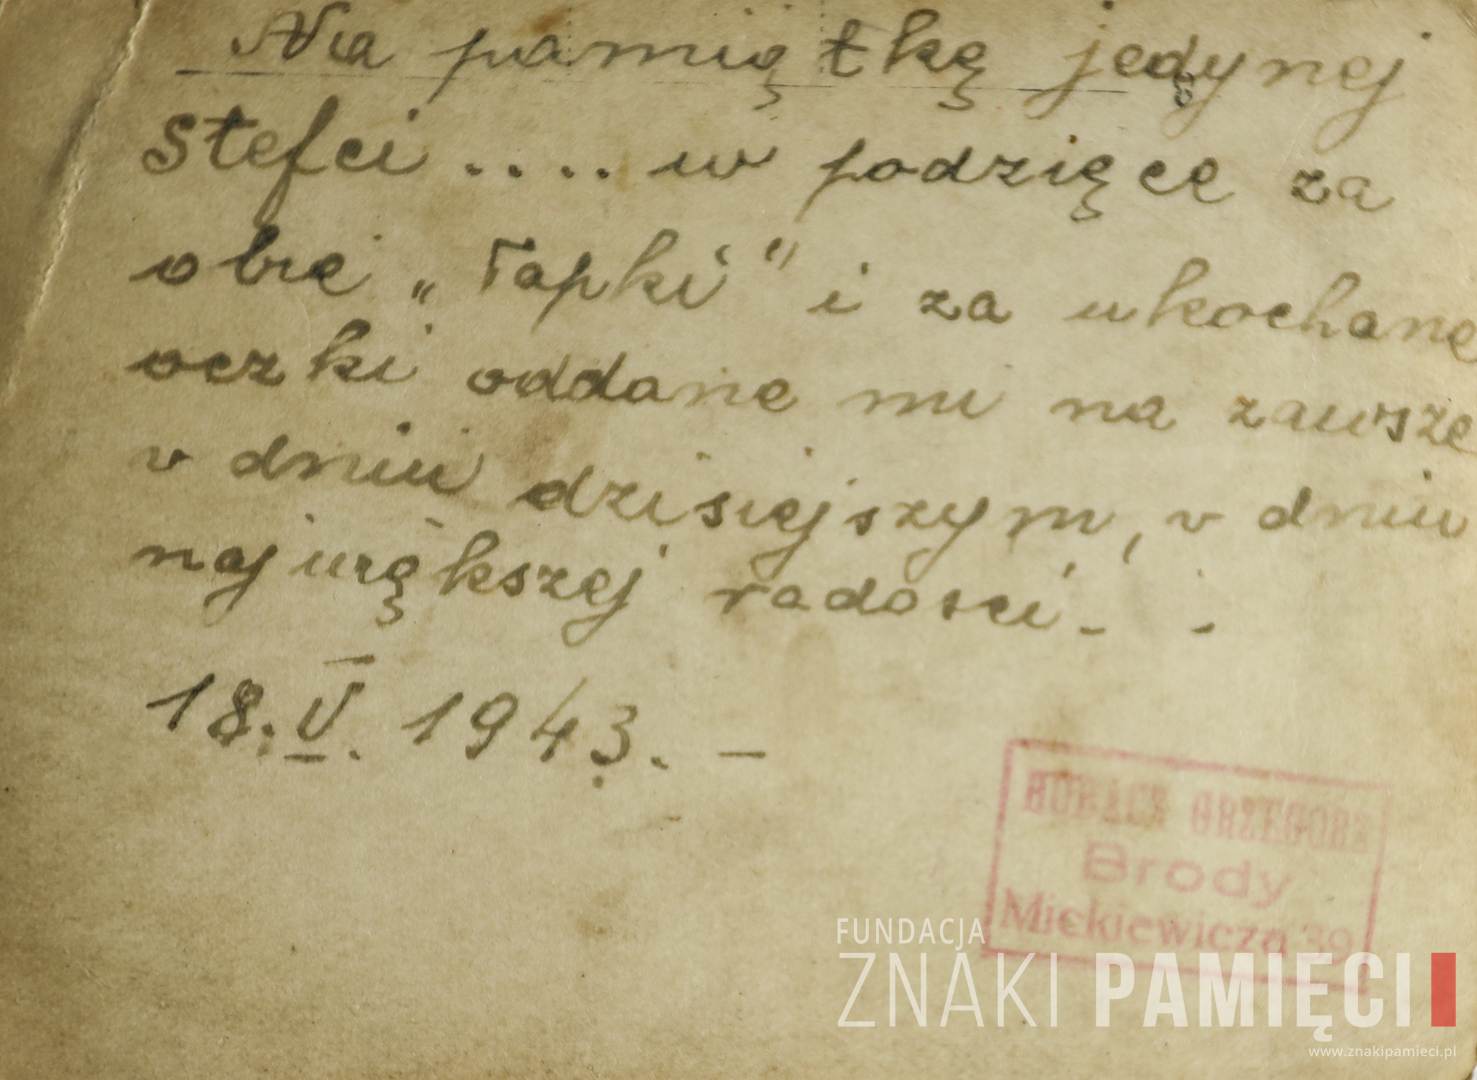 Na pamiątkę jedynej
Stefci .... w podzięce za
obie „Łapki" i za ukochane
oczki oddane mi na zawsze
w dniu dzisiejszym, w dniu
największej radości. .
18.V.1943. —
GRZEGORZ
Brody
Mickiewicza 39
FUNDACJA
ZNAKI PAMIĘCI
www.znakipamieci.pl